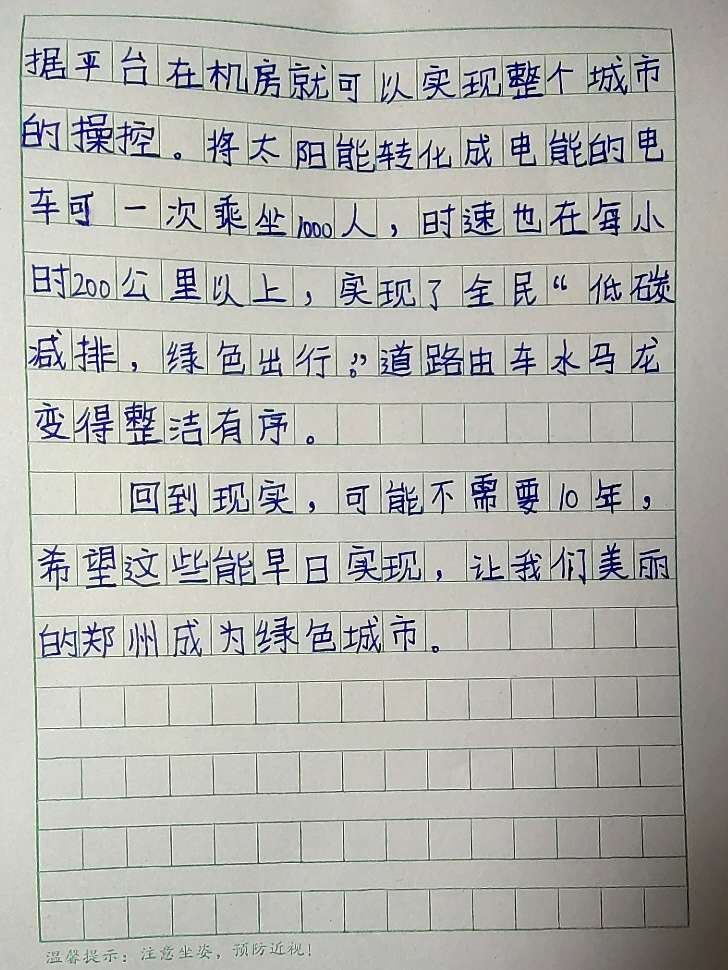 据平台在机房就可以实现整个城市
的操控。将太阳能转化成电能的电
车可一次乘坐1000人，时速也在每小
时200公里以上，实现了全民“低碳
减排，绿色出行。”道路由车水马龙
变得整洁有序。
回到现实，可能不需要10年，
希望这些能早日实现，让我们美丽
的郑州成为绿色城市。
温馨提示：注意坐姿，预防近视！